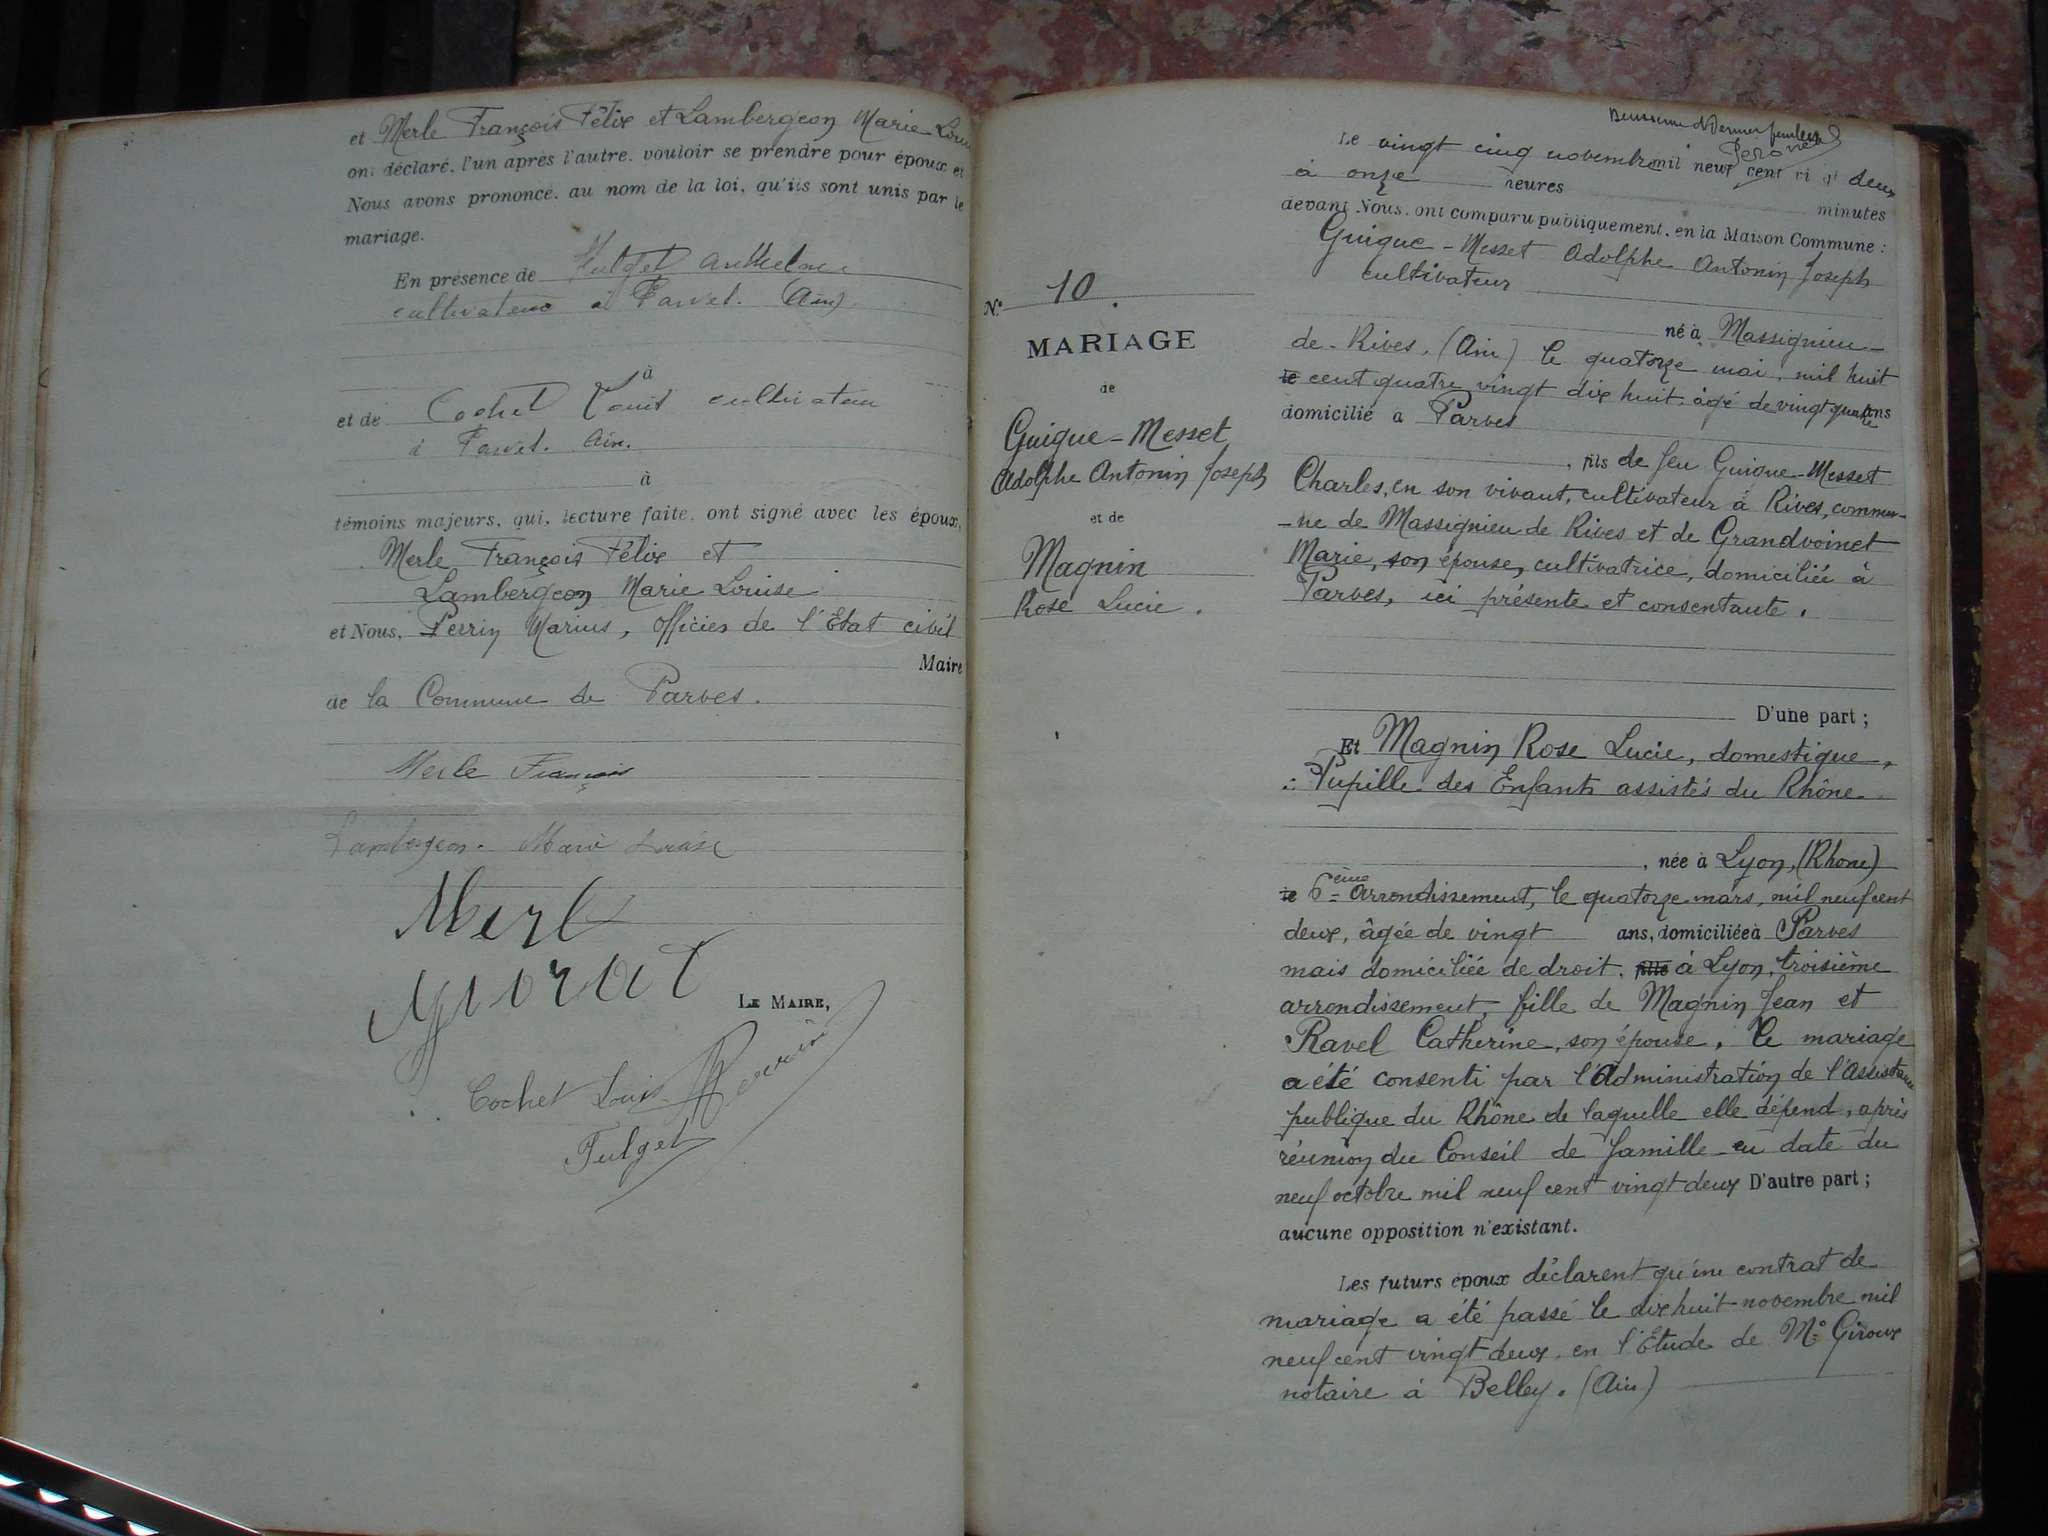 et Merle François Félix et Lambergeon Marie Louise
ont déclaré, l'un après l'autre, vouloir se prendre pour époux et
Nous avons prononcé, au nom de la loi, qu'ils sont unis par le
mariage.
En présence de Fulget Anthelme
cultivateur à Parves. (Ain)
à
et de Cochet Louis cultivateur
à Parves. Ain.
à
témoins majeurs, qui, lecture faite, ont signé avec les époux,
Merle François Félix et
Lambergeon Marie Louise
et Nous, Perrin Marius, Officier de l'Etat civil
Maire
de la Commune de Parves.
Merle François
Lambergeon Marie Louise
Merle
LE MAIRE,
Cochet Louis Perrin
Fulget
N° 10.
MARIAGE
de
Guigue-Messet
Adolphe Antonin Joseph
et de
Magnin
Rose Lucie.
et dernier feuillet
Le vingt cinq novembre mil neuf cent vingt deux
à onze heures minutes
devant Nous, ont comparu publiquement, en la Maison Commune :
Guigue-Messet Adolphe Antonin Joseph
cultivateur
né à Massignieu-
de-Rives, (Ain) le quatorze mai, mil huit
le cent quatre vingt dix huit, âgé de vingt quatre ans
domicilié à Parves
, fils de feu Guigue-Messet
Charles, en son vivant, cultivateur à Rives, commu-
-ne de Massignieu de Rives et de Grandvoinet
Marie, son épouse, cultivatrice, domiciliée à
Parves, ici présente et consentante.
D'une part ;
Et Magnin Rose Lucie, domestique,
Pupille des Enfants assistés du Rhône
, née à Lyon, (Rhone)
le 6ème arrondissement, le quatorze mars, mil neuf cent
deux, âgée de vingt ans, domiciliée à Parves
mais domiciliée de droit, fille à Lyon, troisième
arrondissement, fille de Magnin Jean et
Ravel Catherine, son épouse. Le mariage
a été consenti par l'Administration de l'Assistance
publique du Rhône de laquelle elle dépend, après
réunion du Conseil de famille en date du
neuf octobre mil neuf cent vingt deux D'autre part ;
aucune opposition n'existant.
Les futurs époux déclarent qu'un contrat de
mariage a été passé le dix huit novembre mil
neuf cent vingt deux, en l'Etude de Me Giroux
notaire à Belley. (Ain)